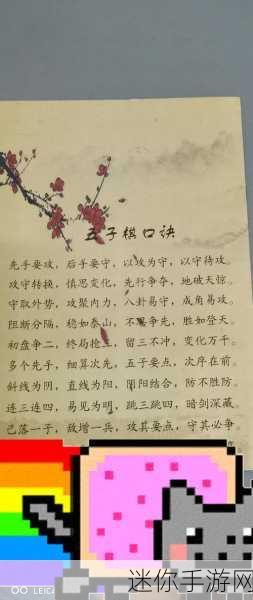 五子棋口诀
先手要攻,后手要守,以攻为守,以守待攻。
攻守转换,慎思变化,先行争夺,地破天惊。
守取外势,攻聚内力,八卦易守,成角易攻。
阻断分隔,稳如泰山,不 争先,胜如登天。
初盘争二,终局抢三,留三不冲,变化万千。
多个先手,细算次先,五子要点,次序在前。
斜线为阴,直线为阳,阴阳结合,防不胜防。
连三连四,易见为明,跳三跳四,暗剑深藏。
己落一子,敌增一兵,攻其要点,守其必争。
LEICA
迷你手游网